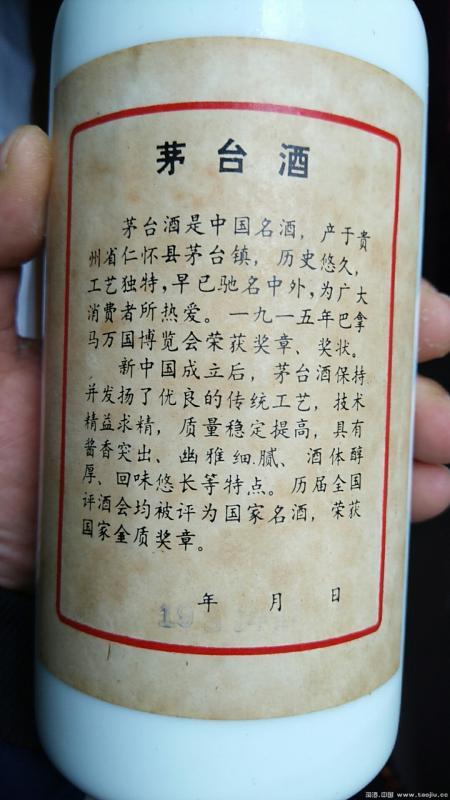 茅台酒
茅台酒是中国名酒，产于贵
州省仁怀县茅台镇，历史悠久，
工艺独特，早已驰名中外，为广大
消费者所热爱。一九一五年巴拿
马万国博览会荣获奖章、奖状。
新中国成立后，茅台酒保持
并发扬了优良的传统工艺，技术
精益求精，质量稳定提高，具有
酱香突出、幽雅细腻、酒体醇
厚、回味悠长等特点。历届全国
评酒会均被评为国家名酒，荣获
国家金质奖章。
年 月 日
19
淘酒.中国 www.taojiu.cc